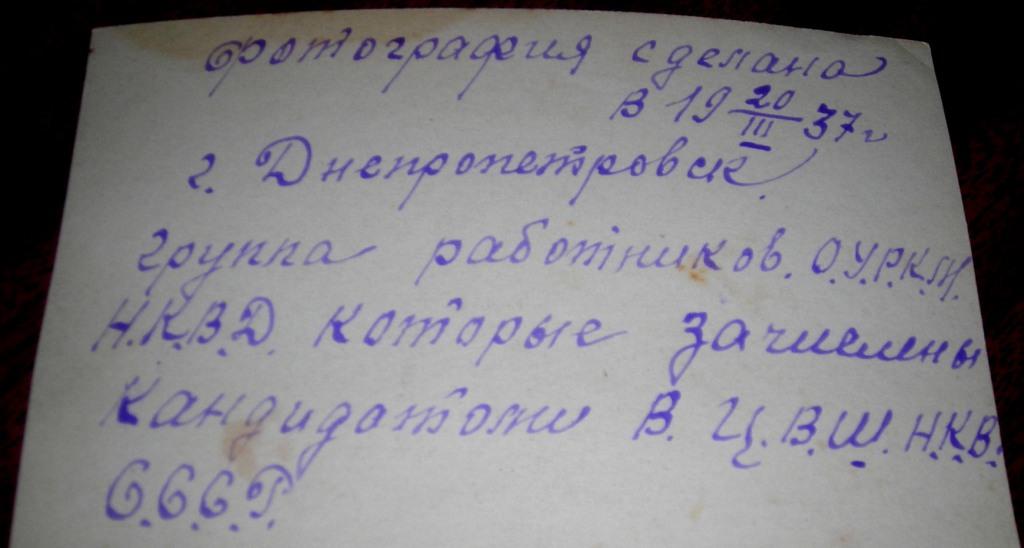 фотография сделана
в 19 20/III 37 г
г. Днепропетровск
группа работников. О.У.Р.К.М.
Н.К.В.Д. которые зачислены
кандидатами В. Ц.В.Ш. Н.К.В.
С.С.С.Р.